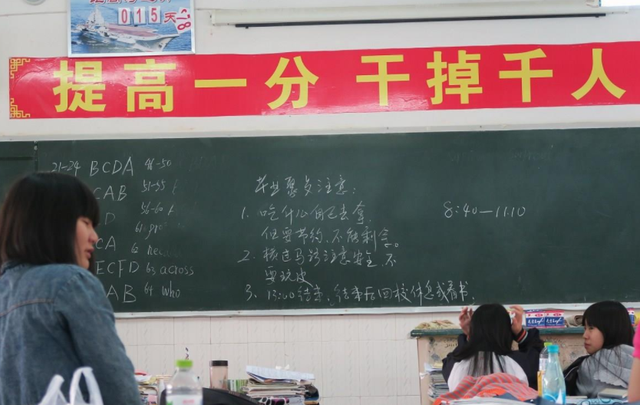 015天
提高一分 干掉千人
21-24 BCDA 46-50
CAB 51-55
D 56-60
CA 62
ECFD 63 across
AB 64 who
毕业聚会注意：
1、吃什么自己去拿，
但要节约，不能剩余。
2、横过马路注意安全，不
要玩皮
3、13:00结束，结束后回校休息或看书
8:40—11:10